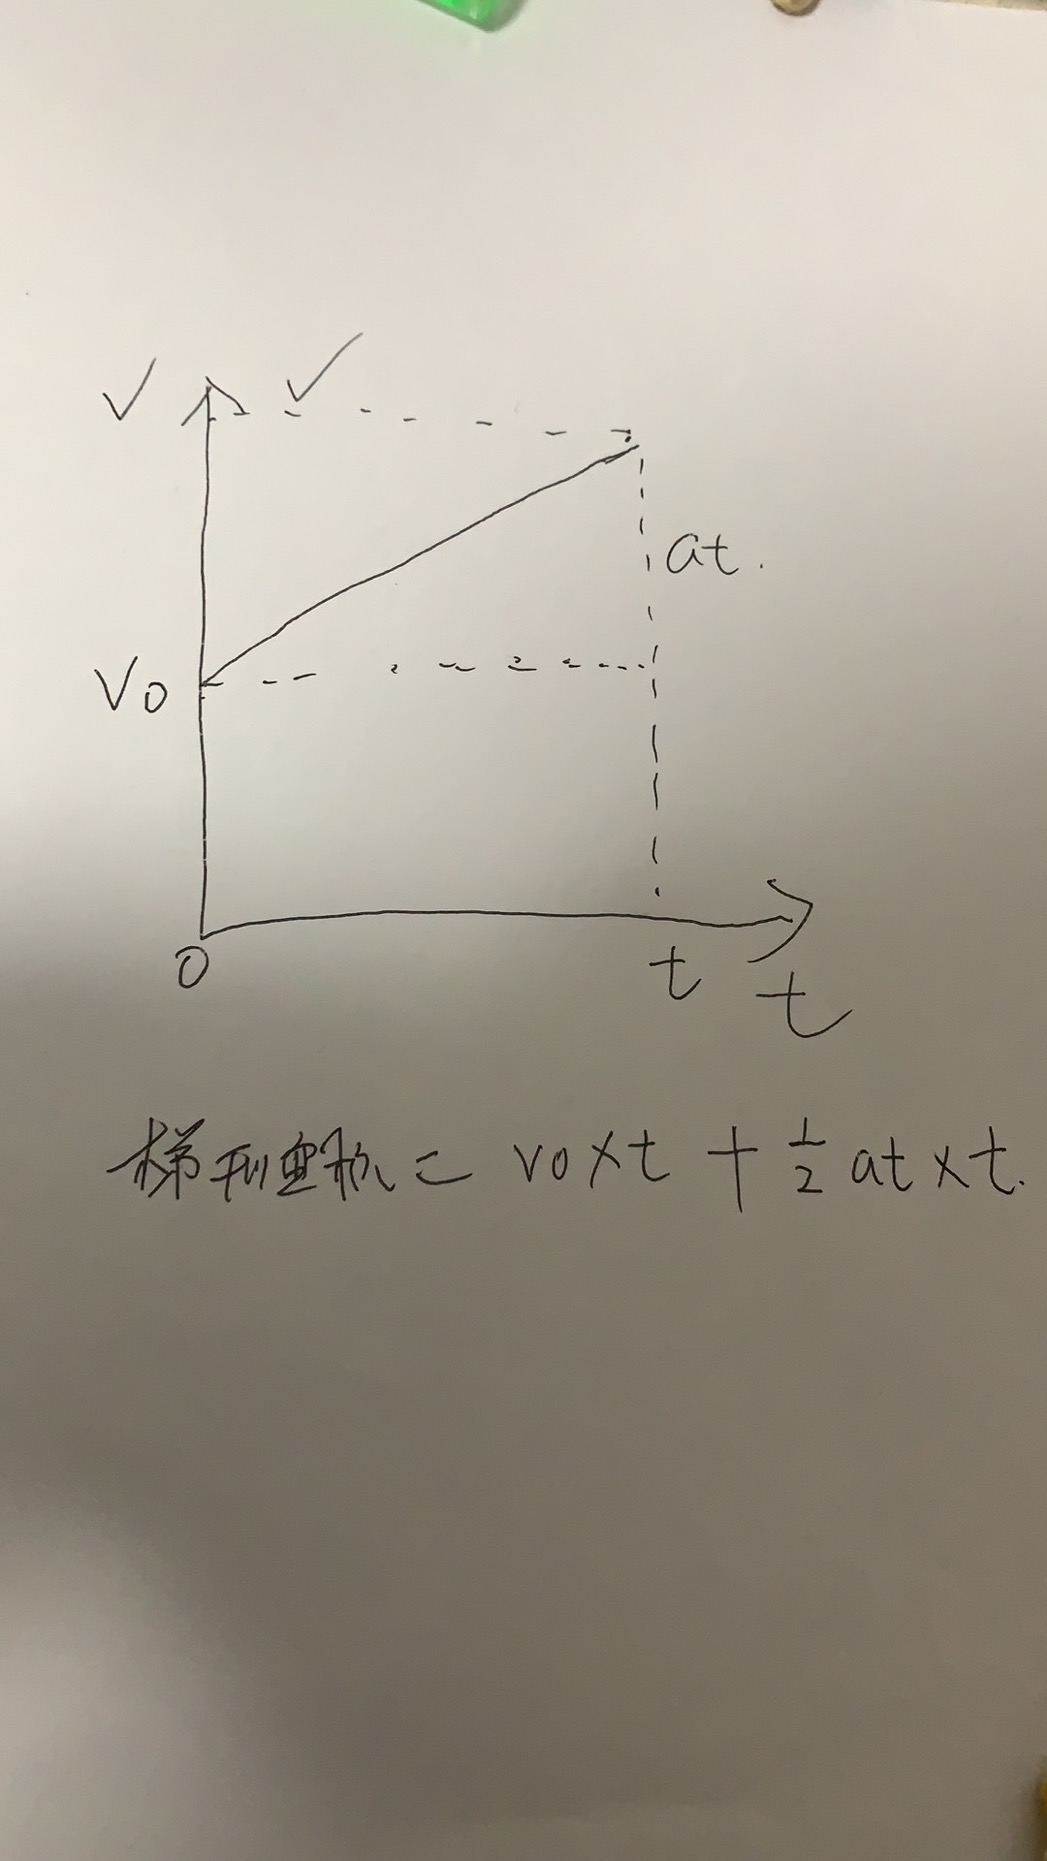 V V
at.
V0
0 t t
梯形面积= v0×t + 1/2 at×t.